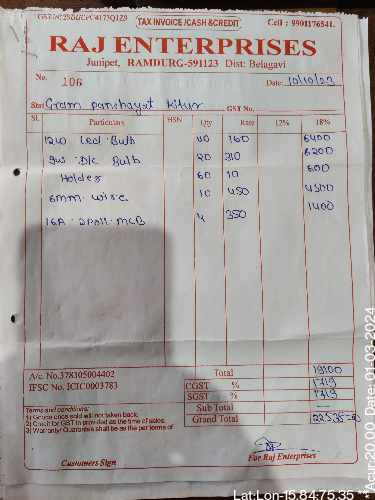 TAX INVOICE /CASH &CREDIT
Cell : 9901176541.
RAJ ENTERPRISES
Junipet, RAMDURG-591123 Dist: Belagavi
No. 106 Date: 10/10/23
Shri Gram panchayat Kitur GST No.
Sl. Particulars HSN Qty Rate 12% 18%
12w Led Bulb 40 160 6400
9w D/c Bulb 20 310 6200
Holder 60 10 600
6mm wire 10 450 4500
16A 2Poll MCB 4 350 1400
A/c. No.378305004402 Total 19100
IFSC No. ICIC0003783 CGST % 1719
SGST % 1719
Sub Total
Terms and conditions:
Grand Total
1) Goods once sold will not taken back.
2) Credit for GST in provided as the time of sales.
3) Warranty/ Guarantee shall be as per the terms of
Customers Sign For Raj Enterprises
Lat:Lon-15.84:75.35
Acur.20.00 Date: 01-03-2024